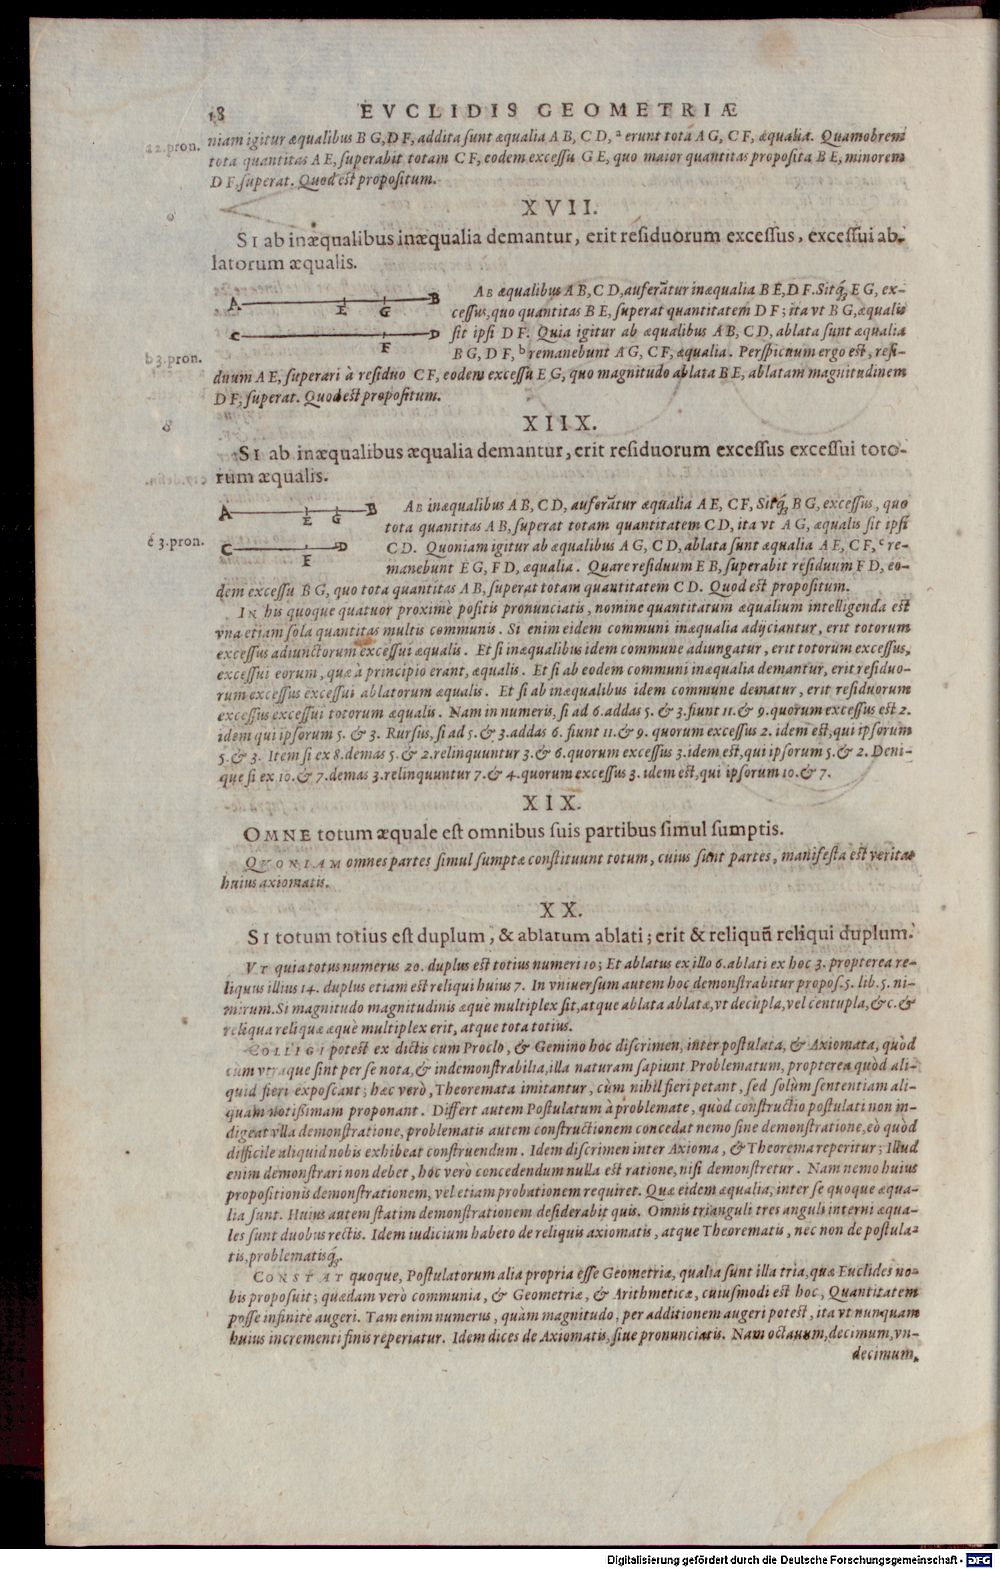 18 EVCLIDIS GEOMETRIÆ
a 2. pron. niam igitur æqualibus B G, D F, addita sunt æqualia A B, C D, ª erunt tota A G, C F, æqualia. Quamobrem
tota quantitas A E, superabit totam C F, eodem excessu G E, quo maior quantitas proposita B E, minorem
D F, superat. Quod est propositum.
XVII.
SI ab inæqualibus inæqualia demantur, erit residuorum excessus, excessui ab-
latorum æqualis.
A B E G
C D F
AB æqualibus A B, C D, auferātur inæqualia B E, D F. Sitq; E G, ex-
cessus, quo quantitas B E, superat quantitatem D F; ita vt B G, æqualis
sit ipsi D F. Quia igitur ab æqualibus A B, C D, ablata sunt æqualia
b 3. pron. B G, D F, ᵇ remanebunt A G, C F, æqualia. Perspicuum ergo est, resi-
duum A E, superari à residuo C F, eodem excessu E G, quo magnitudo ablata B E, ablatam magnitudinem
D F, superat. Quod est propositum.
XIIX.
SI ab inæqualibus æqualia demantur, erit residuorum excessus excessui toto-
rum æqualis.
A B E G
C D F
AB inæqualibus A B, C D, auferātur æqualia A E, C F, Sitq; B G, excessus, quo
tota quantitas A B, superat totam quantitatem C D, ita vt A G, æqualis sit ipsi
c 3. pron. C D. Quoniam igitur ab æqualibus A G, C D, ablata sunt æqualia A E, C F, ᶜ re-
manebunt E G, F D, æqualia. Quare residuum E B, superabit residuum F D, eo-
dem excessu B G, quo tota quantitas A B, superat totam quantitatem C D. Quod est propositum.
IN his quoque quatuor proximè positis pronunciatis, nomine quantitatum æqualium intelligenda est
vna etiam sola quantitas multis communis. Si enim eidem communi inæqualia adijciantur, erit totorum
excessus adiunctorum excessui æqualis. Et si inæqualibus idem commune adiungatur, erit totorum excessus,
excessui eorum, quæ à principio erant, æqualis. Et si ab eodem communi inæqualia demantur, erit residuo-
rum excessus excessui ablatorum æqualis. Et si ab inæqualibus idem commune dematur, erit residuorum
excessus excessui totorum æqualis. Nam in numeris, si ad 6. addas 5. & 3. fiunt 11. & 9. quorum excessus est 2.
idem qui ipsorum 5. & 3. Rursus, si ad 5. & 3. addas 6. fiunt 11. & 9. quorum excessus 2. idem est, qui ipsorum
5. & 3. Item si ex 8. demas 5. & 2. relinquuntur 3. & 6. quorum excessus 3. idem est, qui ipsorum 5. & 2. Deni-
que si ex 10. & 7. demas 3. relinquuntur 7. & 4. quorum excessus 3. idem est, qui ipsorum 10. & 7.
XIX.
OMNE totum æquale est omnibus suis partibus simul sumptis.
QUONIAM omnes partes simul sumptæ constituunt totum, cuius sunt partes, manifesta est veritas
huius axiomatis.
XX.
SI totum totius est duplum, & ablatum ablati; erit & reliquū reliqui duplum.
VT quia totus numerus 20. duplus est totius numeri 10; Et ablatus ex illo 6. ablati ex hoc 3. propterea re-
liquus illius 14. duplus etiam est reliqui huius 7. In vniuersum autem hoc demonstrabitur propos. 5. lib. 5. ni-
mirum. Si magnitudo magnitudinis æquè multiplex sit, atque ablata ablatæ, vt decupla, vel centupla, &c. &
reliqua reliquæ æquè multiplex erit, atque tota totius.
COLLIGI potest ex dictis cum Proclo, & Gemino hoc discrimen, inter postulata, & Axiomata, quòd
cùm vtraque sint per se nota, & indemonstrabilia, illa naturam sapiunt Problematum, propterea quòd ali-
quid fieri exposcant; hæc verò, Theoremata imitantur, cùm nihil fieri petant, sed solùm sententiam ali-
quam notissimam proponant. Differt autem Postulatum à problemate, quòd constructio postulati non in-
digeat vlla demonstratione, problematis autem constructionem concedat nemo sine demonstratione, eò quòd
difficile aliquid nobis exhibeat construendum. Idem discrimen inter Axioma, & Theorema reperitur; Illud
enim demonstrari non debet, hoc verò concedendum nulla est ratione, nisi demonstretur. Nam nemo huius
propositionis demonstrationem, vel etiam probationem requiret. Quæ eidem æqualia, inter se quoque æqua-
lia sunt. Huius autem statim demonstrationem desiderabit quis. Omnis trianguli tres anguli interni æqua-
les sunt duobus rectis. Idem iudicium habeto de reliquis axiomatis, atque Theorematis, nec non de postula-
tis, problematisq;.
CONSTAT quoque, Postulatorum alia propria esse Geometriæ, qualia sunt illa tria, quæ Euclides no-
bis proposuit; quædam verò communia, & Geometriæ, & Arithmeticæ, cuiusmodi est hoc, Quantitatem
posse infinitè augeri. Tam enim numerus, quàm magnitudo, per additionem augeri potest, ita vt nunquam
huius incrementi finis reperiatur. Idem dices de Axiomatis, siue pronunciatis. Nam octauum, decimum, vn-
decimum,
Digitalisierung gefördert durch die Deutsche Forschungsgemeinschaft - DFG